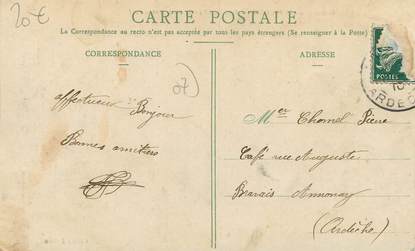 20€
CARTE POSTALE
La Correspondance au recto n'est pas acceptée par tous les pays étrangers (Se renseigner à la Poste)
CORRESPONDANCE
ADRESSE
POSTES
ARDÈ
07
affectueux Bonjour
Bonnes amitiés
Mer Chomel Pierre
Café rue Auguste
Bravais Annonay
(Ardèche)